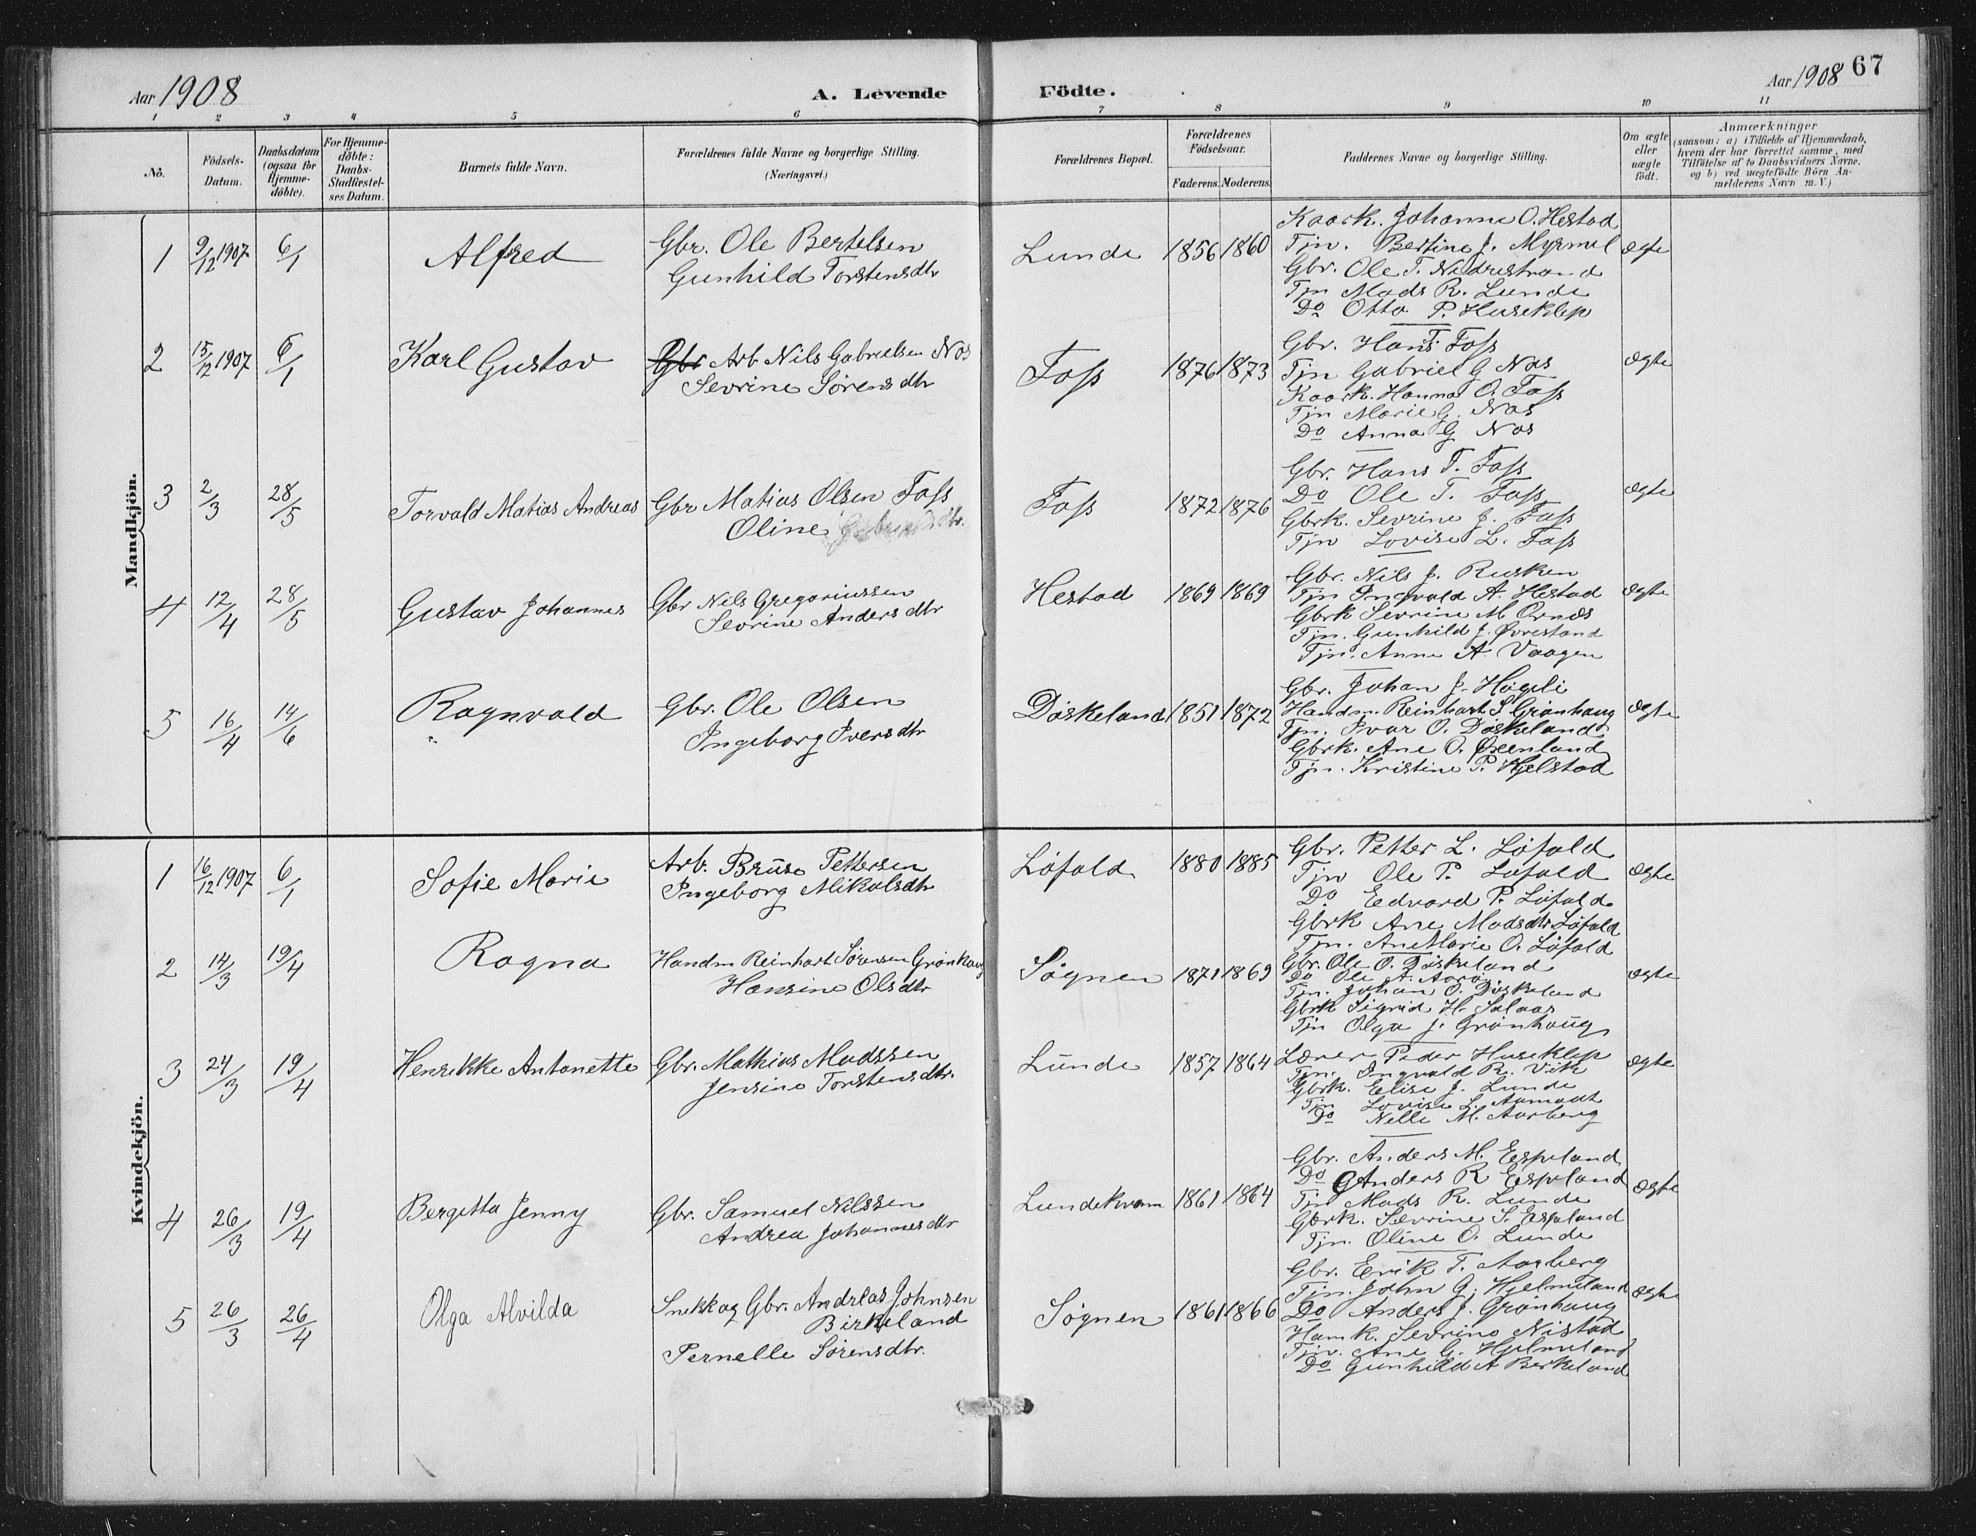 Aar 1908
A. Levende Födte.
Aar 1908 67
1 2 3 4 5 6 7 8 9 10 11
No.
Födsels-Datum.
Daabsdatum (ogsaa for Hjemme-döbte).
For Hjemme-döbte: Daabs-Stadfæstel-ses Datum.
Barnets fulde Navn.
Forældrenes fulde Navne og borgerlige Stilling. (Næringsvei.)
Forældrenes Bopæl.
Forældrenes Födselsaar.
Faderens. Moderens.
Faddernes Navne og borgerlige Stilling.
Om ægte eller uægte födt.
Anmærkninger
(saasom: a) i Tilfælde af Hjemmedaab, hvem der har forrettet samme, med Tilföielse af to Daabsvidners Navne, og b) ved uægtefödte Börn An-melderens Navn m. V.)
Mandkjön.
1 9/12 1907 6/1 Alfred
Gbr. Ole Bertelsen
Gunhild Torstensdtr
Lunde 1856 1860
Kaark. Johanne O. Hestad
Tjn. Bertine J. Myrmel
Gbr. Ole T. Nedrestrand
Tjn Mads R. Lunde
Do Otto P. Huseklep
ægte
2 15/12 1907 6/1 Karl Gustav
Gbr Arb Nils Gabrielsen Nos
Sevrine Sørensdtr
Foss 1876 1873
Gbr. Hans T. Foss
Tjn Gabriel G Nos
Kaark. Hanna O. Foss
Tjn Marie G. Nos
Do Anna G Nos
ægte
3 2/3 28/5 Torvald Matias Andreas
Gbr Matias Olsen Foss
Oline Gabrielsdtr.
Foss 1872 1876
Gbr. Hans T. Foss
Do Ole T. Foss
Gbrk. Sevrine J. Foss
Tjn Lovise L. Foss
ægte
4 12/4 28/5 Gustav Johannes
Gbr Nils Gregoriussen
Sevrine Andersdtr
Hestad 1869 1869
Gbr. Nils J. Rusken
Tjn Ingvald A. Hestad
Gbrk Sevrine M. Ornæs
Tjn. Gunhild J. Øvrestand
Tjn. Anne A. Vaagen
ægte
5 16/4 14/6 Ragnvald
Gbr. Ole Olsen
Ingeborg Iversdtr
Døskeland 1851 1872
Gbr. Johan J. Høgeli
Handm. Reinhart S Grønhaug
Tjn. Ivar O. Døskeland
Gbrk. Ane O. Øxenland
Tjn. Kristine P. Hjelstad
ægte
Kvindekjön.
1 16/12 1907 6/1 Sofie Marie
Arb. Bruse Pettersen
Ingeborg Mikalsdtr
Løfald 1880 1885
Gbr. Petter L. Løfald
Tjn Ole P. Løfald
Do Edvard P. Løfald
Gbrk Ane Madsdtr Løfald
Tjn. Ane Marie O. Løfald
ægte
2 14/3 19/4 Ragna
Handm Reinhart Sørensen Grønhaug
Hansine Olsdtr
Søgnen 1871 1869
Gbr. Ole O. Døskeland
Do Ole A. Aarø
Tjn. Johan O. Døskeland
Gbrk Sigrid H. Solaas
Tjn Olga J. Grønhaug
ægte
3 24/3 19/4 Henrikke Antonette
Gbr. Mathias Madssen
Jensine Torstensdtr.
Lunde 1857 1864
Lærer Peder Huseklep
Tjn. Ingvald R. Vik
Gbrk. Elise J. Lunde
Tjn Lovise L. Aamodt
Do Nelle M. Aarberg
ægte
4 26/3 19/4 Bergitta Jenny
Gbr. Samuel Nilssen
Andrea Johannesdtr
Lundekvam 1861 1864
Gbr. Anders M. Espeland
Do Anders R Espeland
Tjn Mads R. Lunde
Gbrk. Sevrine S. Espeland
Tjn. Oline O. Lunde
ægte
5 26/3 26/4 Olga Alvilda
Snekk og Gbr. Andreas Johnsen
Birkeland
Pernelle Sørensdtr.
Søgnen 1861 1866
Gbr. Erik T. Aarberg
Tjn. John G. Hjelmeland
Do Anders J. Grønhaug
Hamk. Sevrine Nistad
Tjn. Ane G. Hjelmeland
Do Gunhild A Birkeland
ægte